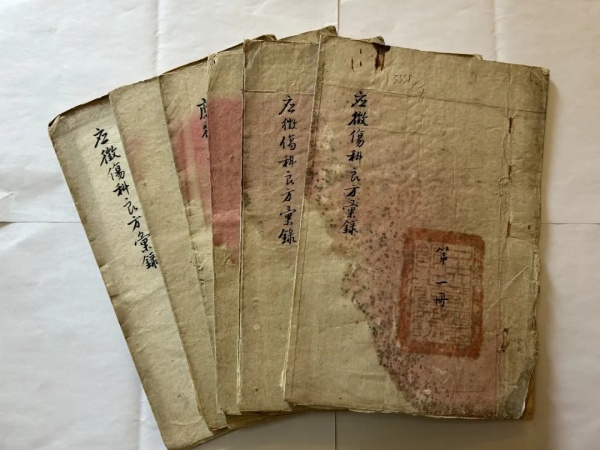 应徵傷科良方彙錄
应徵傷科良方彙錄
应徵傷科良方彙錄
第一冊